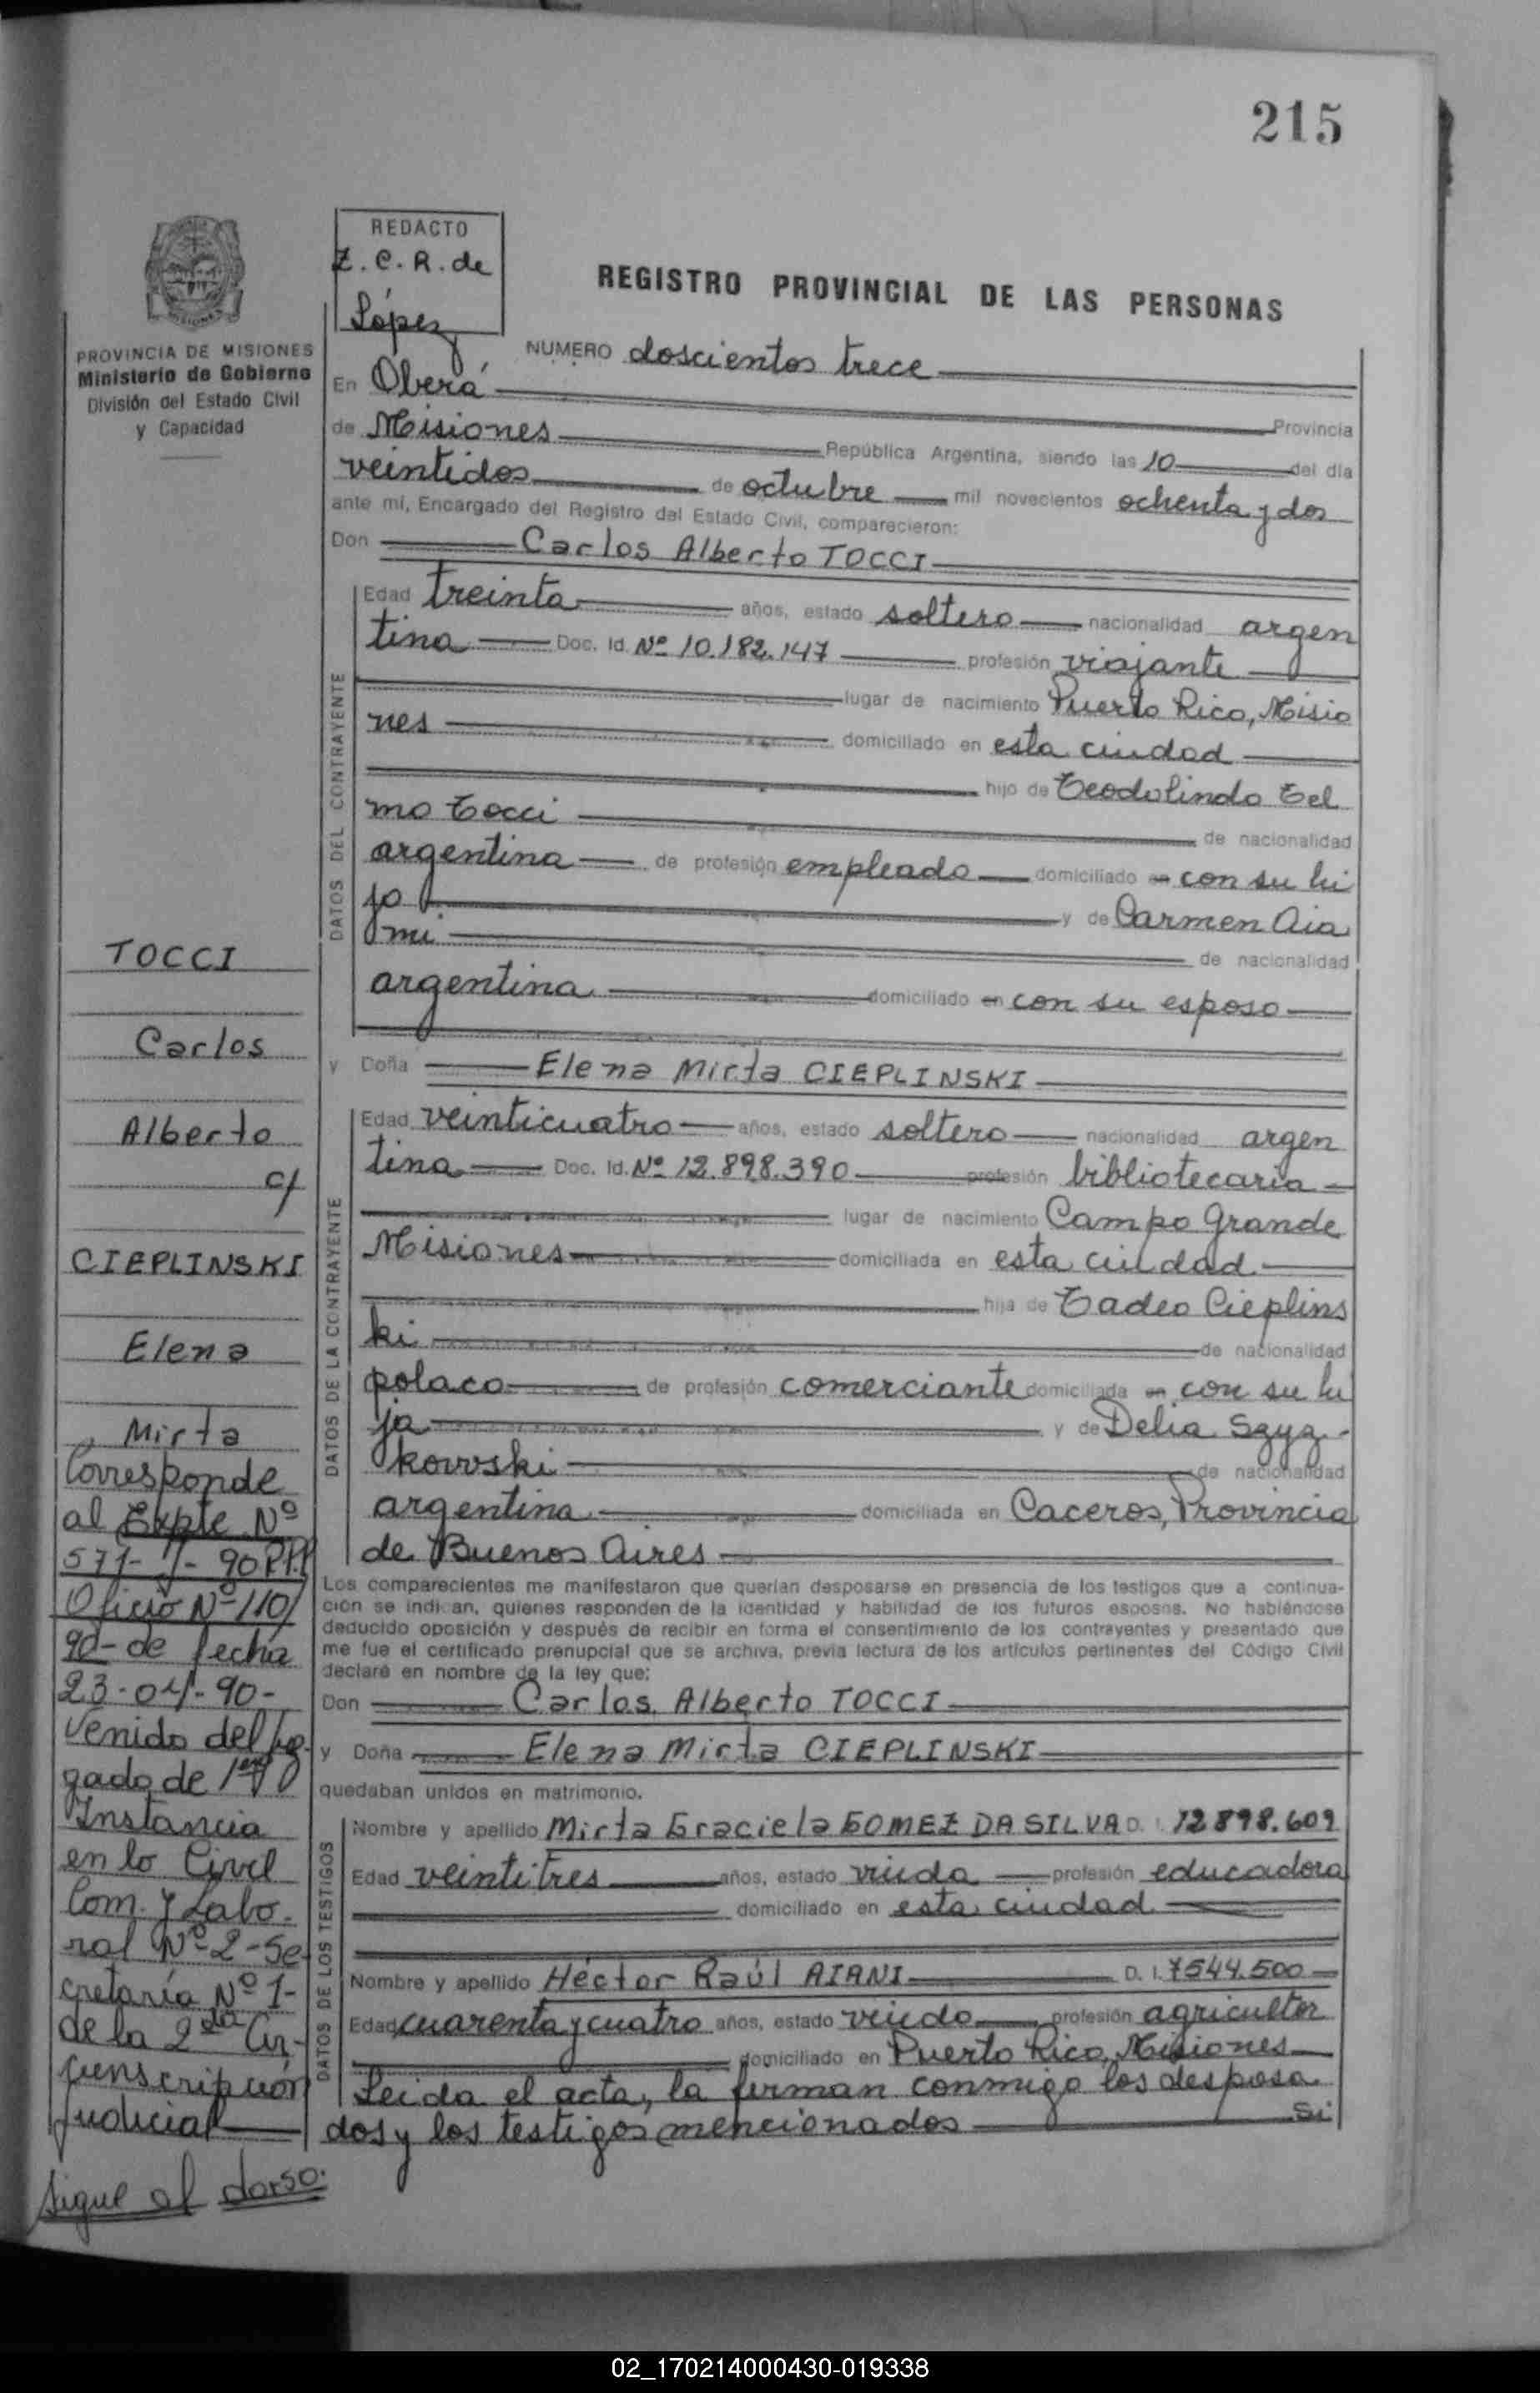 215
REDACTO
Z. C. R. de
López
REGISTRO PROVINCIAL DE LAS PERSONAS
PROVINCIA DE MISIONES
Ministerio de Gobierno
División del Estado Civil
y Capacidad
NUMERO doscientos trece
En Oberá
Provincia
de Misiones República Argentina, siendo las 10 del día
veintidos de octubre mil novecientos ochenta y dos
ante mí, Encargado del Registro del Estado Civil, comparecieron:
Don Carlos Alberto TOCCI
DATOS DEL CONTRAYENTE
Edad treinta años, estado soltero nacionalidad argen
tina Doc. Id. Nº 10.182.147 profesión viajante
lugar de nacimiento Puerto Rico, Misio
nes domiciliado en esta ciudad
hijo de Teodolindo Tel
mo Tocci de nacionalidad
argentina de profesión empleado domiciliado en con su hi
jo y de Carmen Aia
mi de nacionalidad
argentina domiciliado en con su esposo
y Doña Elena Mirta CIEPLINSKI
DATOS DE LA CONTRAYENTE
Edad veinticuatro años, estado soltero nacionalidad argen
tina Doc. Id. Nº 12.898.390 profesión bibliotecaria
lugar de nacimiento Campo Grande
Misiones domiciliada en esta ciudad
hija de Tadeo Cieplins
ki de nacionalidad
polaco de profesión comerciante domiciliada en con su hi
ja y de Delia Szyz-
kowski de nacionalidad
argentina domiciliada en Caceros, Provincia
de Buenos Aires
Los comparecientes me manifestaron que querían desposarse en presencia de los testigos que a continua-
ción se indican, quienes responden de la identidad y habilidad de los futuros esposos. No habiéndose
deducido oposición y después de recibir en forma el consentimiento de los contrayentes y presentado que
me fue el certificado prenupcial que se archiva, previa lectura de los artículos pertinentes del Código Civil
declaré en nombre de la ley que:
Don Carlos Alberto TOCCI
y Doña Elena Mirta CIEPLINSKI
quedaban unidos en matrimonio.
DATOS DE LOS TESTIGOS
Nombre y apellido Mirta Graciela GOMEZ DA SILVA D. I. 12898.609
Edad veintitres años, estado viuda profesión educadora
domiciliado en esta ciudad
Nombre y apellido Héctor Raúl AIANI D. I. 7544.500
Edad cuarenta y cuatro años, estado viudo profesión agricultor
domiciliado en Puerto Rico, Misiones
Leida el acta, la firman conmigo los desposa
dos y los testigos mencionados Si
TOCCI
Carlos
Alberto
c/
CIEPLINSKI
Elena
Mirta
Corresponde
al Expte Nº
571- 90
Oficio Nº 110/
90- de fecha
23-04-90-
Venido del Juz
gado de 1ra
Instancia
en lo Civil
Com. y Labo-
ral Nº 2-Se
cretaría Nº 1-
de la 2da Cir-
cunscripción
Judicial
Sigue al dorso.
02_170214000430-019338